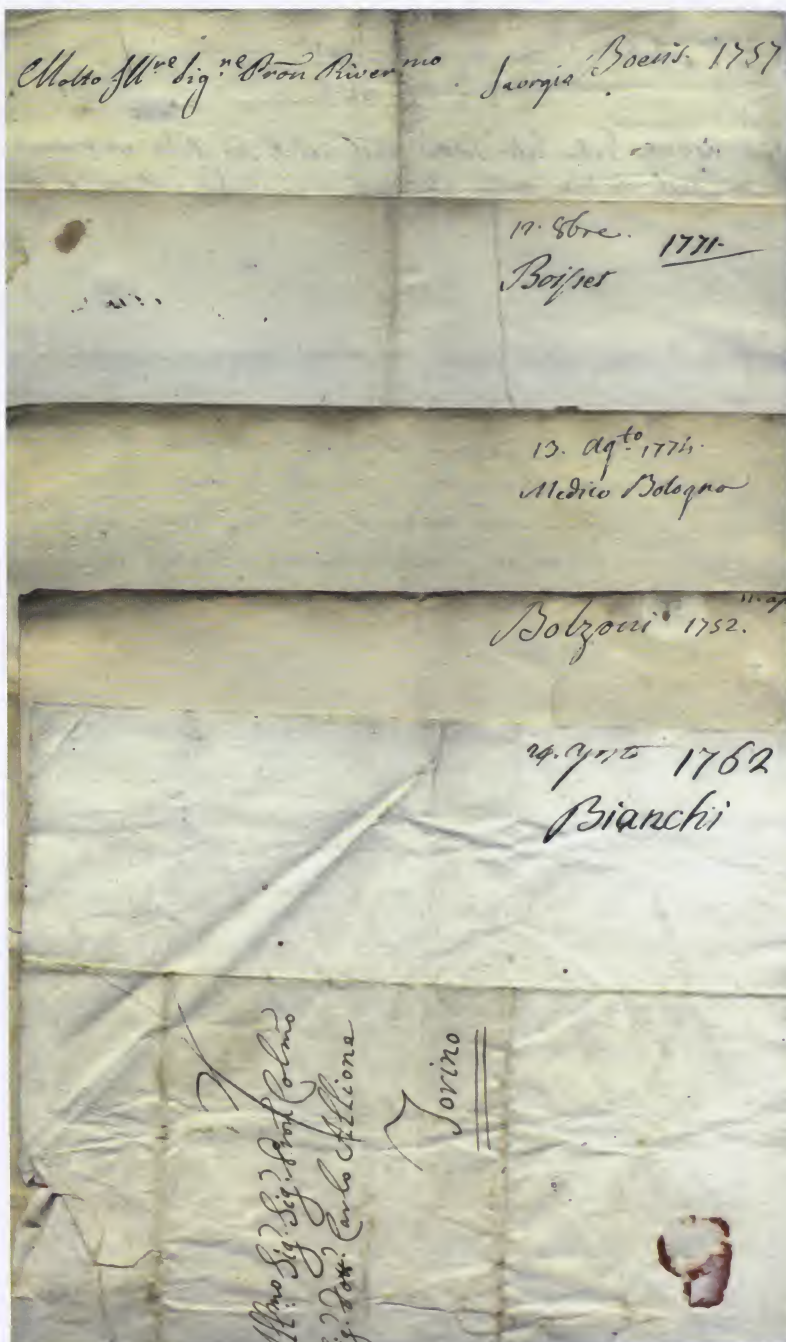 Molto Ill.re Sig.ne Pron River.mo
Saorgia Boeris. 1757
12. 8bre. 1771.
Boisset
13. Ag.to 1774.
Medico Bologna
Bolzoni 1752.
24. Agosto 1762
Bianchi
Sig.r Sig.r Pron Colmo
Dott.r Carlo Allione
Torino